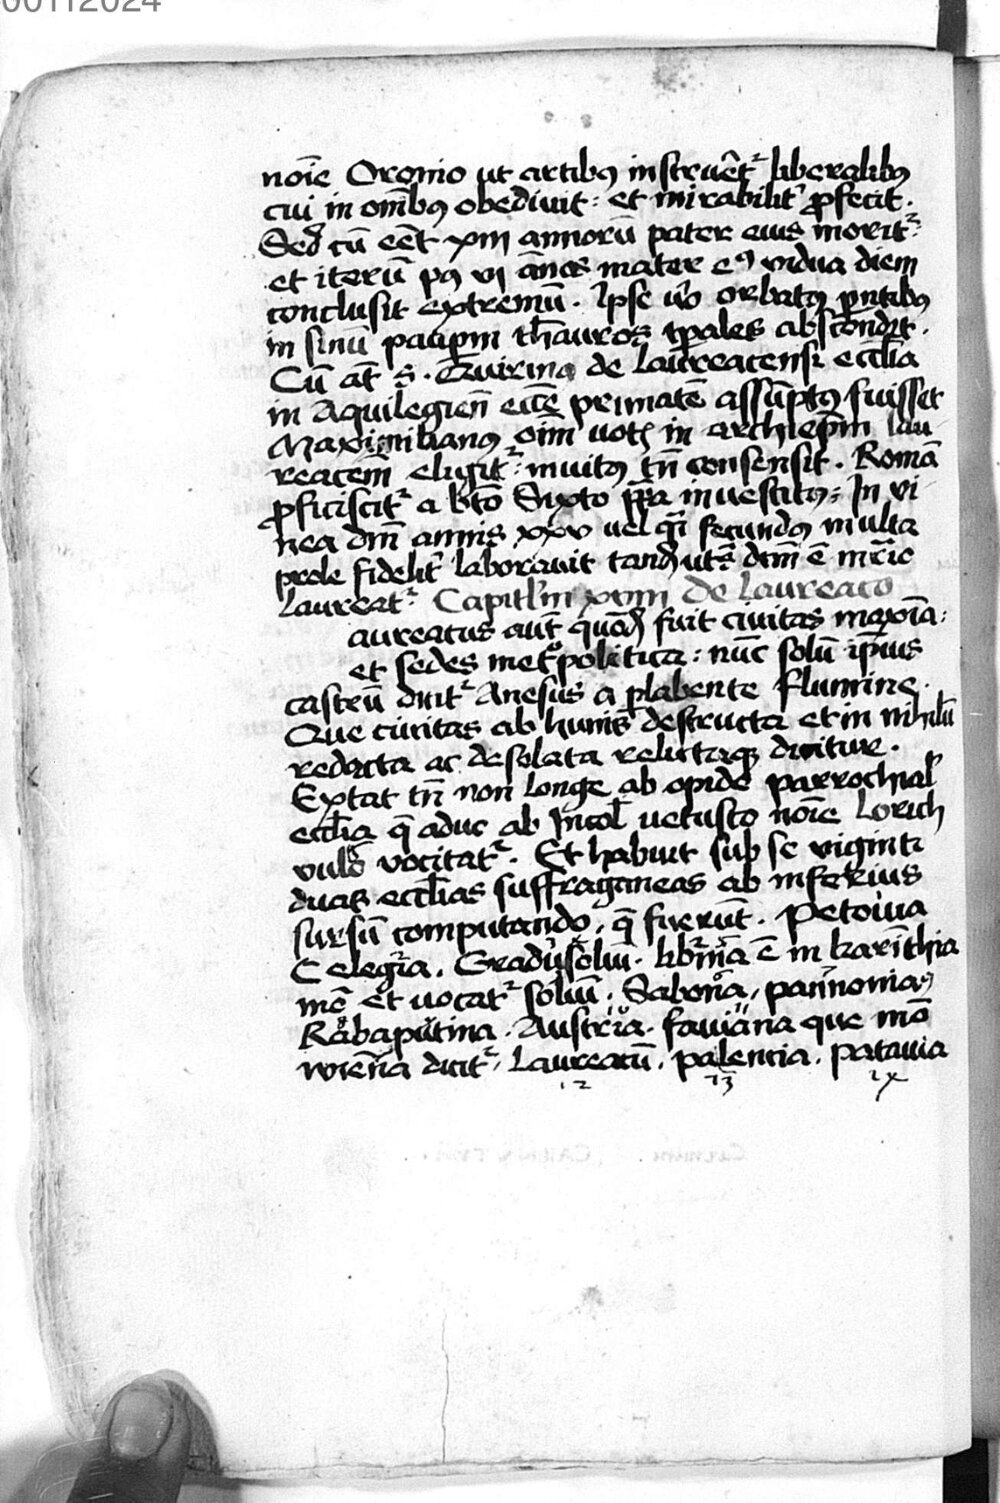 00112024
noīe Oronio ut artibꝯ instruēt᷑ liberalibꝯ
cui in omībꝯ obediuit : et mirabilit᷑ ꝓfecit .
Sed cū eēt xiii annorū pater eius morit᷑ :
et iterū pꝯ vi ānos mater eꝯ vidua diem
conclusit extremū . Ipse v̄o orbatꝯ pntibꝯ
in sinū paupm th̄auros tpales abscondit .
Cū aūt s . Quirinꝯ de laureacensi eccl̄ia
in Aquilegien̄ eccē primatē assūptꝯ fuisset
Maximilianꝯ oīm in archiep̄m lau
reacem̄ eligit᷑ : inuitꝯ tn̄ consensit . Romā
ꝓficiscit᷑ a bt̄o Sixto pp̄a inuestitꝯ : In vi
nea dn̄i annis xxv uel qī secundos multa
prole fidelit᷑ laborauit ē mr̄ie
laureat᷑ Capitl̄m xviii De laureaco
aureatus aūt quōdā fuit ciuitas maxīa :
et sedes met̊politica : nūc solū ip̄ius
castrū dicit᷑ Anesus a plabente flumine .
Que ciuitas ab hunis destructa et in nihilū
redacta ac desolata relictaqꝫ dicitur .
Extat tn̄ non longe ab opido parrochial̕
eccl̄ia q̄ aduc ab Incol̕ uetusto noīe Lorich
vocitat᷑ . Et habuit sub se viginti
duas eccl̄ias suffraganeas ab inferius
sursū computando , q̄ fuerūt . Petouia
Celegia . Gradus soluū . ē in karīthia
mō et uocat᷑ soluū . Sabona , pannonia ,
Rabaputina . Austria . fauiana que mō
wienna dicit᷑ , Laureacū . palencia . patauia
12 13 1x